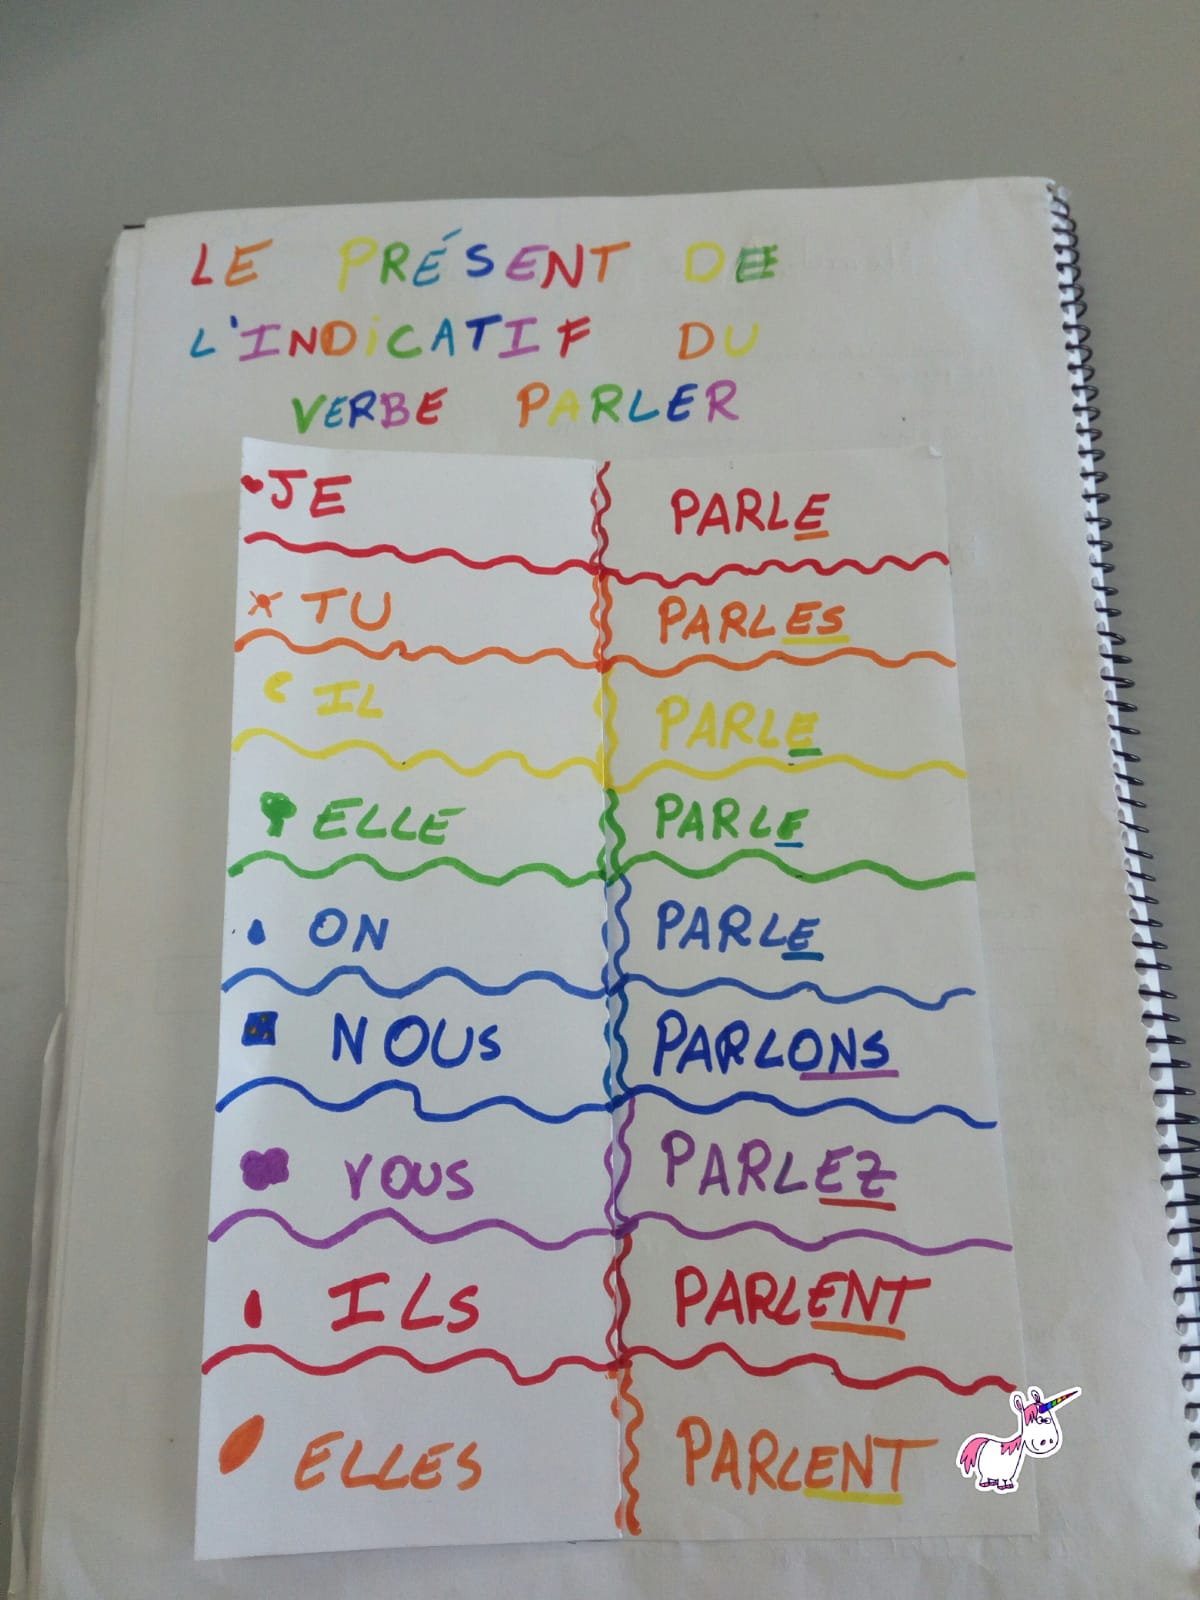 LE PRÉSENT DE
L'INDiCATIF DU
VERBE PARLER
JE PARLE
TU PARLES
IL PARLE
ELLE PARLE
ON PARLE
NOUS PARLONS
VOUS PARLEZ
ILS PARLENT
ELLES PARLENT